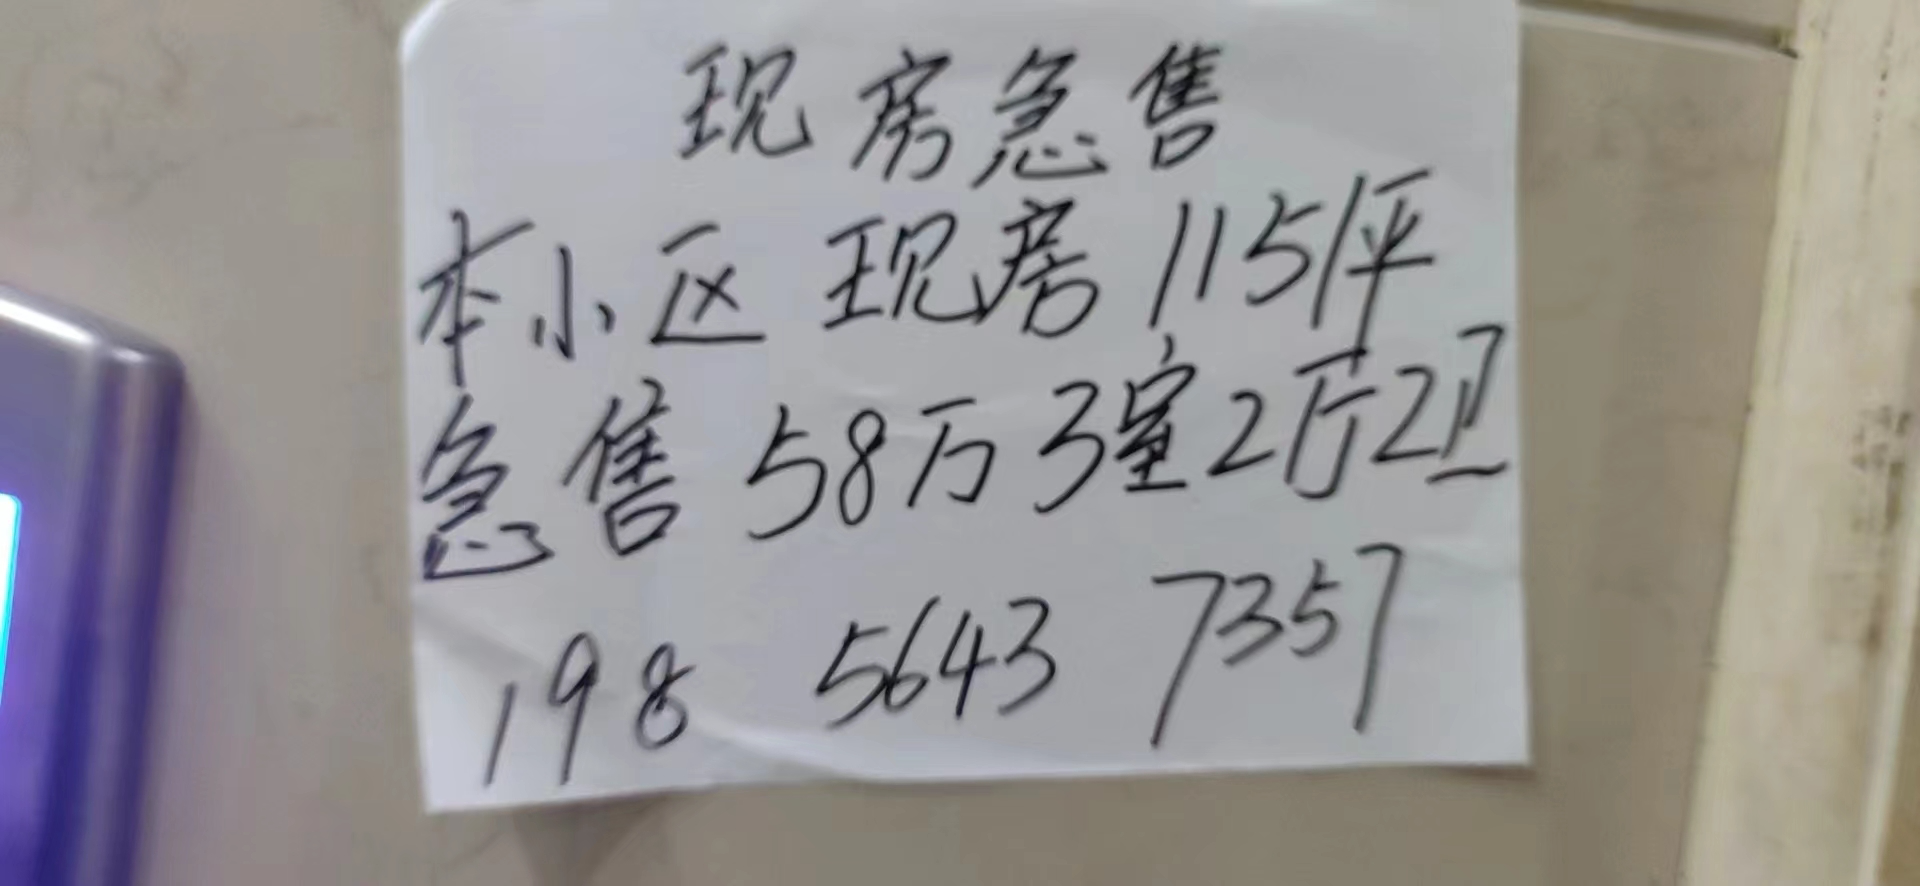 现房急售
本小区 现房 115坪
急售 58万 3室2厅2卫
198 5643 7357